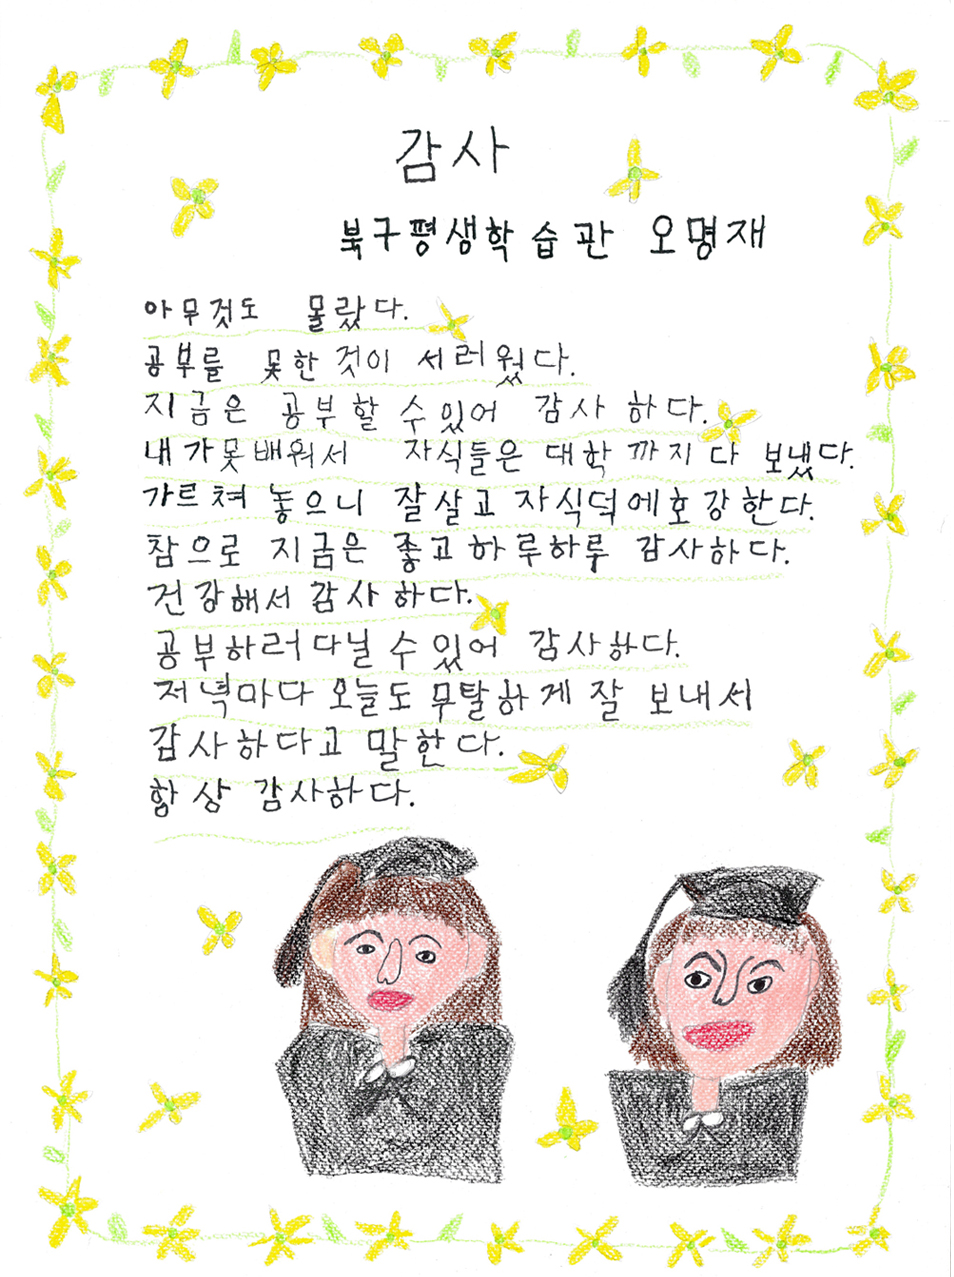 감사
북구평생학습관 오명재
아무것도 몰랐다.
공부를 못한 것이 서러웠다.
지금은 공부할 수 있어 감사 하다.
내가못배워서 자식들은 대학 까지 다 보냈다.
가르쳐 놓으니 잘살고 자식덕에호강한다.
참으로 지금은 좋고하루하루 감사하다.
건강해서 감사하다.
공부하러다닐 수 있어 감사하다.
저녁마다 오늘도 무탈하게 잘 보내서
감사하다고 말한다.
항상 감사하다.